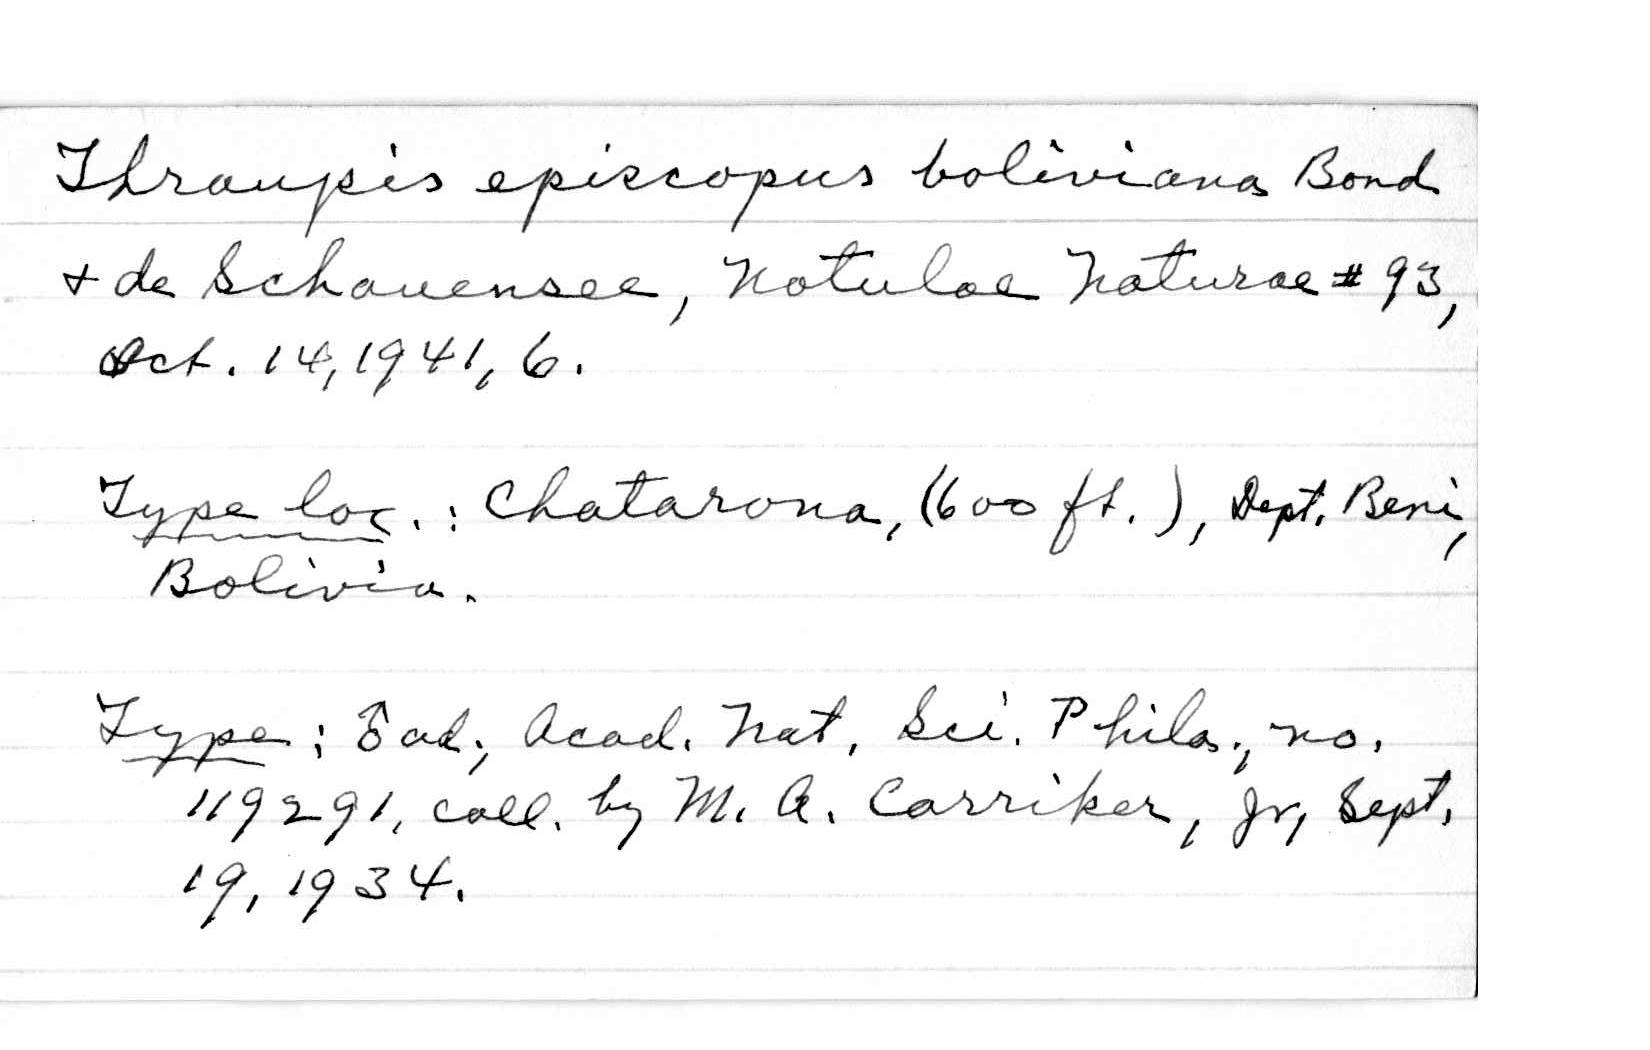 Thraupis episcopus boliviana Bond
+ de Schauensee, Notulae Naturae # 93,
Oct. 14, 1941, 6.
Type loc. : Chatarona, (600 ft.), Dept. Beni,
Bolivia.
Type : ♂ ad; Acad. Nat. Sci. Phila., no.
119291, coll. by M. A. Carriker, Jr, Sept.
19, 1934.